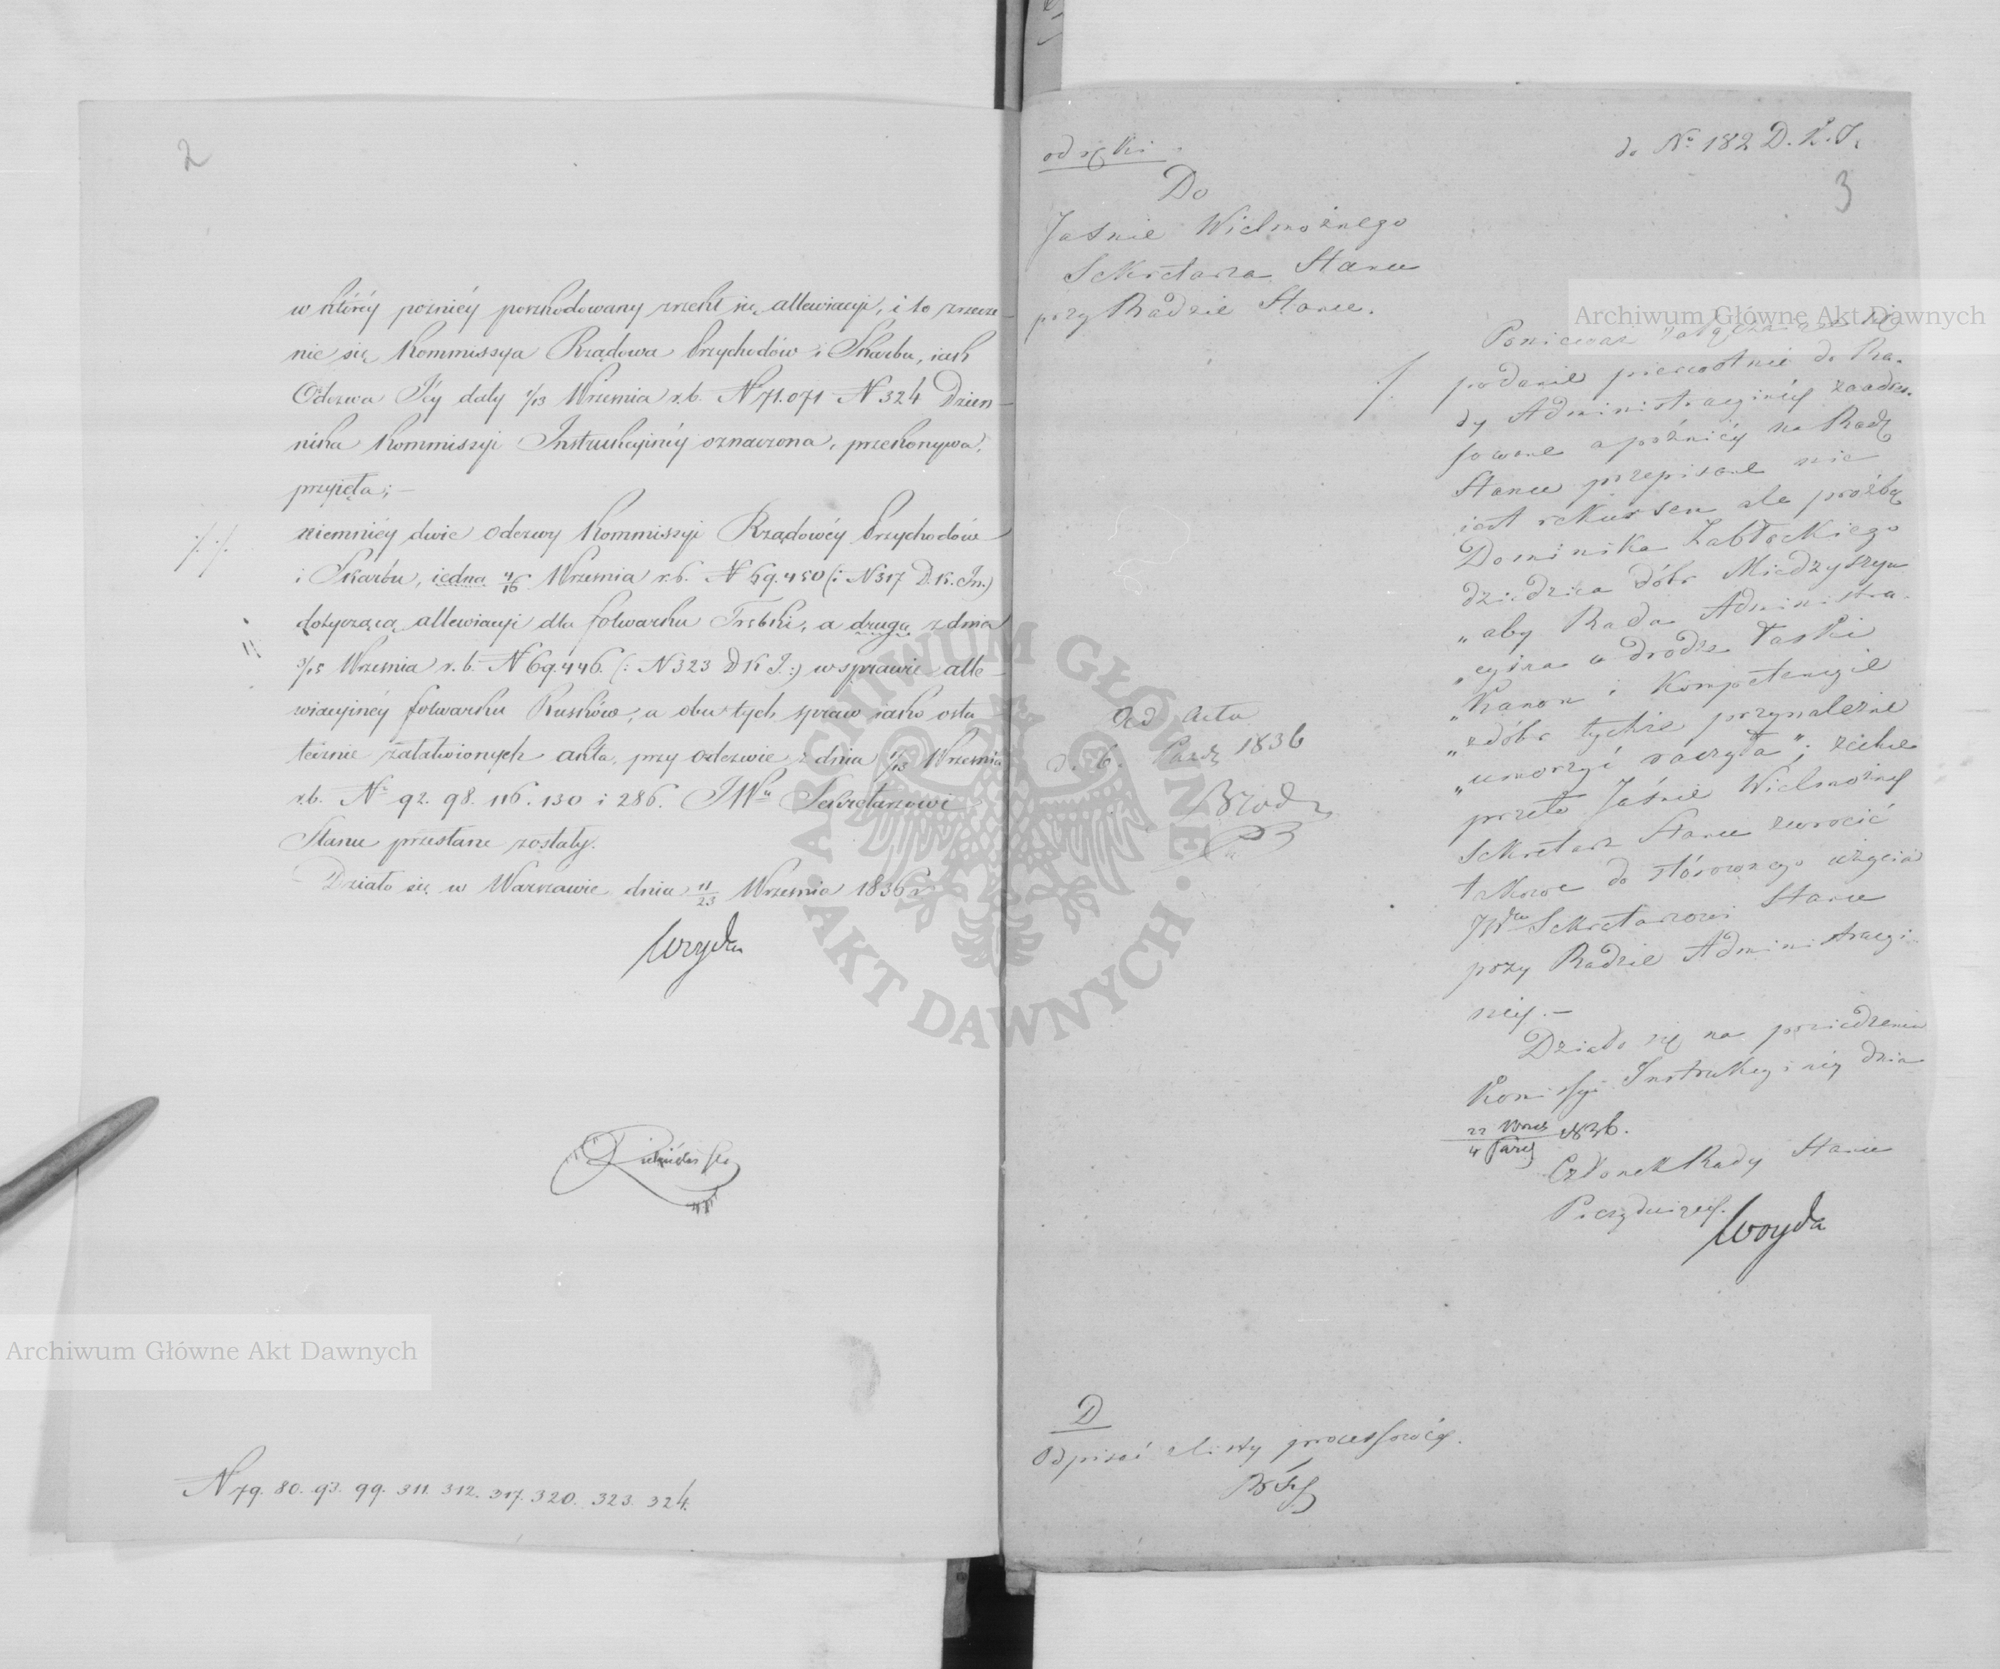 2
w którćy poznićy poszkodowany zrzekł się allewiacyi, i to zrzecze-
nie się Kommissya Rządowa Przychodów i Skarbu, iak
Odezwa Jéy daty 1/13 Września r.b. N 71.071 N 324 Dzien-
nika Kommissyi Instrukcyinéy oznaczona, przekonywa,
przyięła; —
niemnićy dwie odezwy Kommissyi Rządowéy Przychodów
i Skarbu, iedna 4/16 Września r.b. N 69.450 (: N 317 D.K.In.)
dotycząca allewiacyi dla folwarku Trębki, a druga z dnia
3/15 Września r.b. N 69.446. (: N 323 D K I.:) w sprawie alle-
wiacyinéy folwarku Rusków, a obu tych spraw iako osta
tecznie załatwionych akta, przy odezwie z dnia 1/13 Września
r.b. No 92. 98. 116. 130 i 286. JWu Sekretarzowi
Stanu przesłane zostały.
Działo się w Warszawie dnia 11/23 Września 1836 r.
Woyda
N 79. 80. 93. 99. 311. 312. 317. 320. 323. 324.
od ręki.
do No 182 D. K. I.
3
Do
Jaśnie Wielmożnego
Sekretarza Stanu
przy Radzie Stanu.
Ponieważ załączaiące się
podanie pierwotnie do Ra-
dy Administracyinéy zaadres-
sowane a późniéy na Radę
Stanu przepisane nie
iest rekursem ale proźbą
Dominika Zabłockiego
dziedzica dóbr Miedzyszyn
„aby Rada Administra-
„cyina w drodze łaski
„Kanon i Kompetencye
„z dóbr tychże przynależne
„umorzyć raczyła"; zechce
przeto Jaśnie Wielmożny
Sekretarz Stanu zwrocić
takowe do stósownego użycia
JWmu Sekretarzowi Stanu
przy Radzie Administracyi-
néy. —
Działo się na posiedzeniu
Komissyi Instrukcyinéy dnia
22 Wrześ/4 Paźd 1836.
Członek Rady Stanu
Prezyduiący.
Woyda
Od Akta
d. 6. Paźdz 1836
D
Odpisać z listy processowéy.